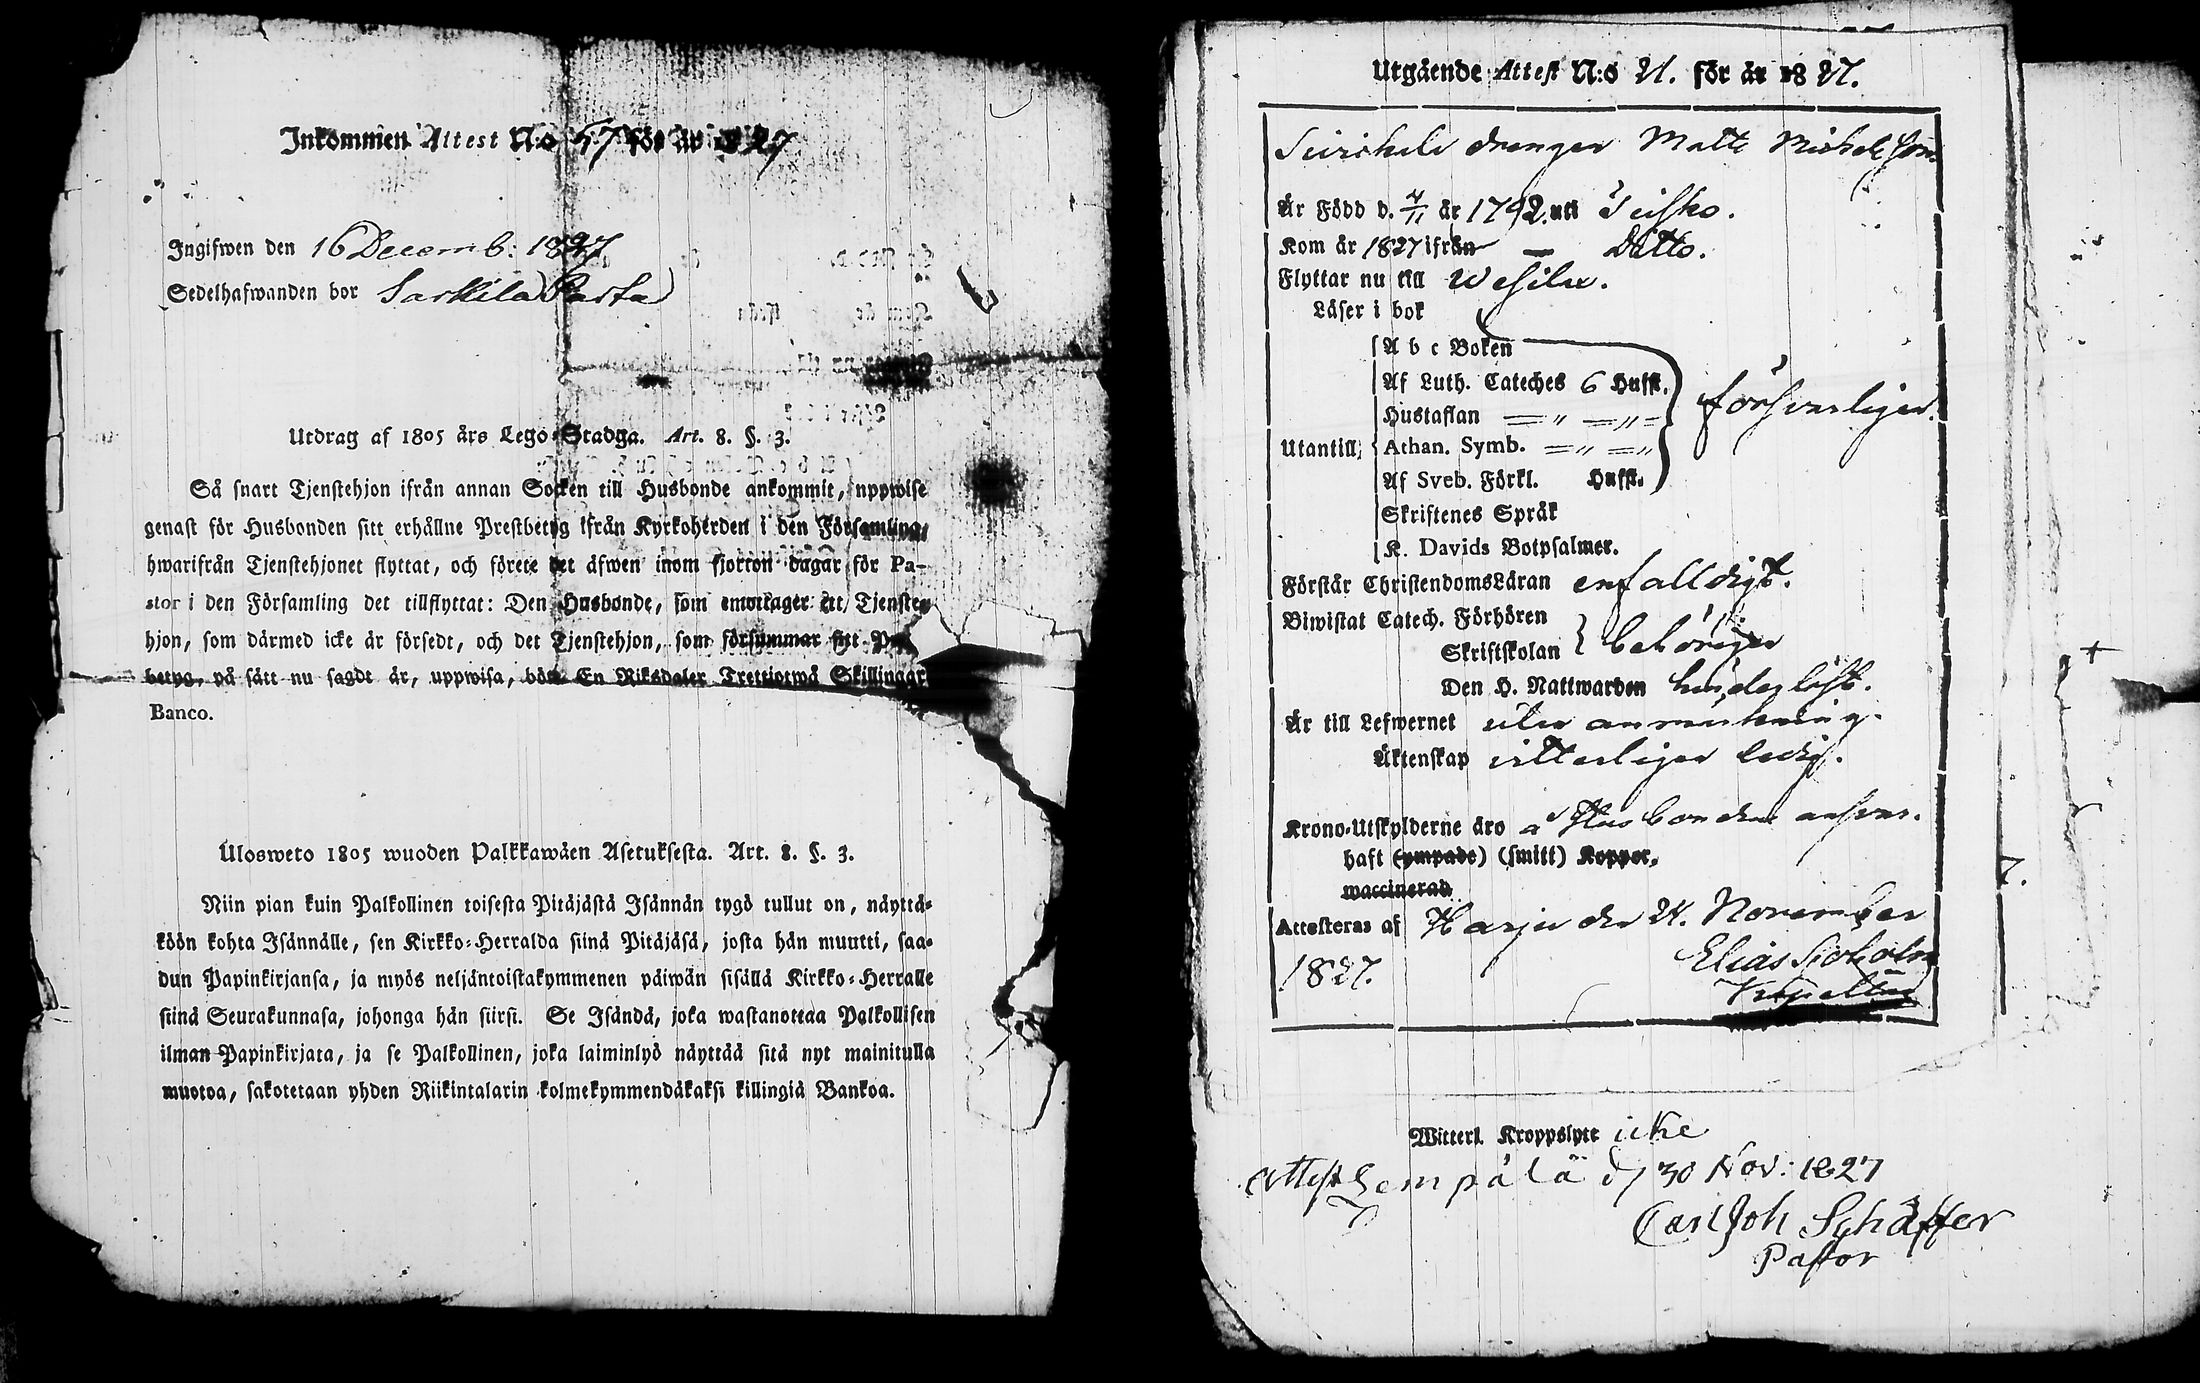 Inkommen Attest N:o 57 för år 1827
Ingifwen den 16 Decemb: 1827
Sedelhafwanden bor Sarkila
Utdrag af 1805 års Lego-Stadga. Art. 8. §. 3.
Så snart Tjenstehjon ifrån annan Socken till Husbonde ankommit, uppwise
genast för Husbonden sitt erhållne Prestbetyg ifrån Kyrkoherden i den Församling
hwarifrån Tjenstehjonet flyttat, och förete det äfwen inom fjorton dagar för Pa-
stor i den Församling det tillflyttat: Den Husbonde, som emottager ett Tjenste-
hjon, som därmed icke är försedt, och det Tjenstehjon, som försummar sitt
betyg, på sätt nu sagdt är, uppwisa, böte En Riksdaler Trettiotwå Skillingar
Banco.
Ulosweto 1805 wuoden Palkkawäen Asetuksesta. Art. 8. §. 3.
Niin pian kuin Palkollinen toisesta Pitäjästä Isännän tygö tullut on, näyttä-
köön kohta Isännälle, sen Kirkko-Herralda siinä Pitäjäsä, josta hän muutti, saa-
dun Papinkirjansa, ja myös neljäntoistakymmenen päiwän sisällä Kirkko-Herralle
siinä Seurakunnasa, johonga hän siirsi. Se Isändä, joka wastanottaa Palkollisen
ilman Papinkirjata, ja se Palkollinen, joka laiminlyö näyttää sitä nyt mainitulla
muotoa, sakotetaan yhden Riikintalarin kolmekymmendäkaksi killingiä Bankoa.
Utgående Attest N:o 21. för år 1827.
drengen Matts Michelsson
Är Född d. 4/11 år 1792 uti
Kom år 1827 ifrån — Ditto.
Flyttar nu till Wesilax.
Läser i bok
A b c Boken
Af Luth. Cateches 6 Hufst. försvarligen.
Hustaflan = " = " =
Utantill, Athan. Symb. = " = "
Af Sveb. Förkl. Hufst.
Skriftenes Språk
K. Davids Botpsalmer.
Förstår ChristendomsLäran enfalldigt.
Biwistat Catech. Förhören
Skriftskolan behörigen
Den H. Nattwarden
Är till Lefwernet utan anmärkning.
Äktenskap vitterligen ledig.
Krono-Utskylderne äro å Husbondens ansvar.
haft (ympade) (smitt) Koppor.
waccinerad
Attesteras af Harju den 21. November
1827. Elias
Witterl. Kroppslyte icke
Attest Lempälä d 30 Nov: 1827
Carl Joh Schäffer
Pastor